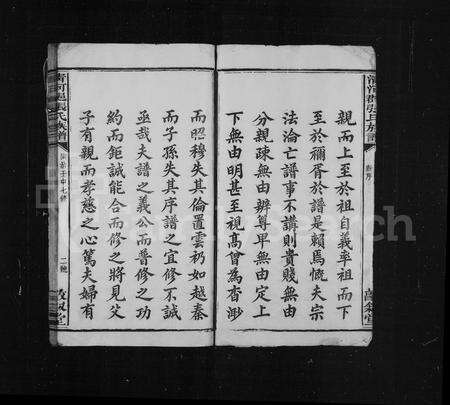 親而上至於祖自義率祖而下
至於禰胥於譜是賴焉慨夫宗
法淪亡譜事不講則貴賤無由
分親疎無由辨尊卑無由定上
下無由明甚至視高曾為杳渺
而昭穆失其倫置雲礽如越秦
而子孫失其序譜之宜修不誠
亟哉夫譜之義公而普修之功
約而鉅誠能合而修之將見父
子有親而孝慈之心篤夫婦有